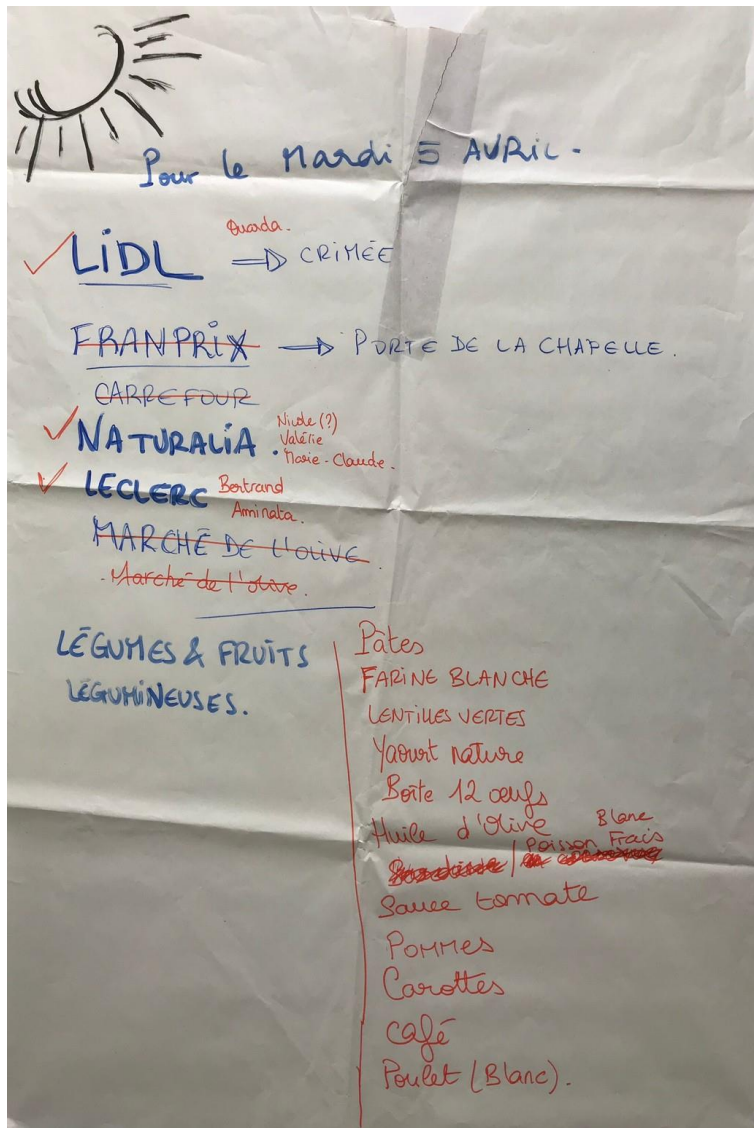 Pour le Mardi 5 AVRIL.
Ouarda.
LIDL ⇒ CRIMÉE
FRANPRIX → PORTE DE LA CHAPELLE.
CARREFOUR
NATURALIA.
Nicole (?)
Valérie
Marie-Claude.
LECLERC
Bertrand
Aminata.
MARCHÉ DE L'OLIVE.
- Marché de l'olive.
LÉGUMES & FRUITS
LÉGUMINEUSES.
Pâtes
FARINE BLANCHE
LENTILLES VERTES
Yaourt nature
Boîte 12 œufs
Huile d'Olive
Blanc
/ Poisson Frais
Sauce tomate
POMMES
Carottes
Café
Poulet (Blanc).